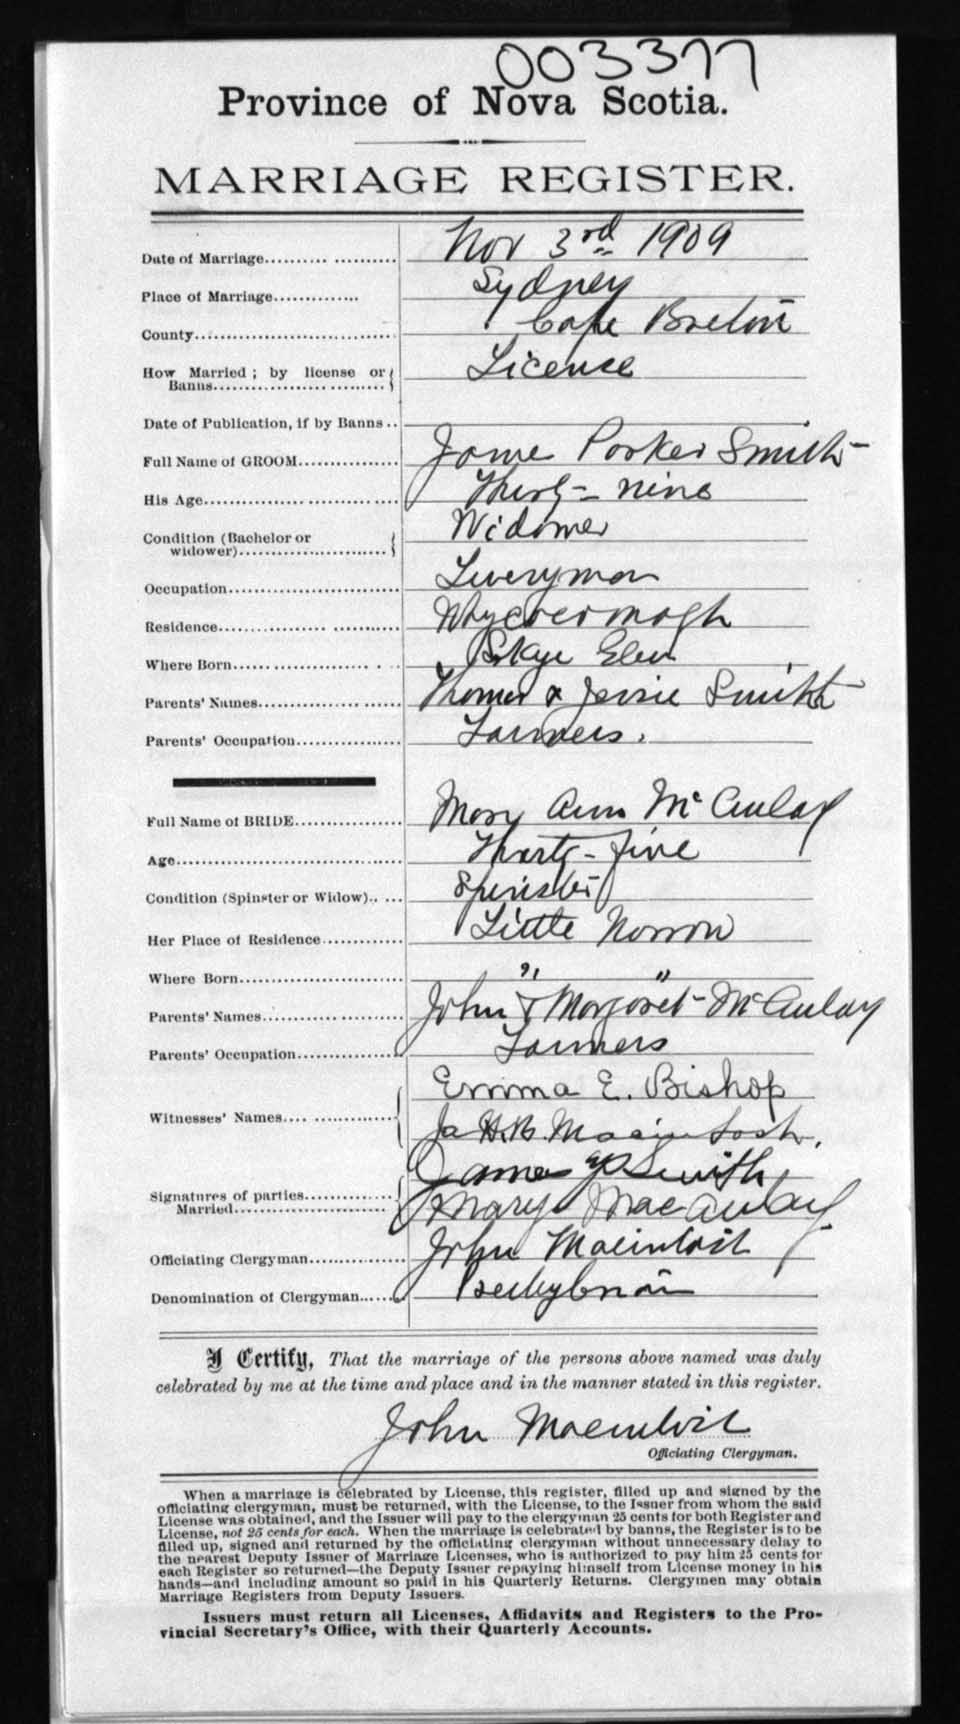 003377
Province of Nova Scotia.
MARRIAGE REGISTER.
Date of Marriage.......... ........... Nov 3rd 1909
Place of Marriage.............. Sydney
County................................. Cape Breton
How Married ; by license or Licence
Banns............................
Date of Publication, if by Banns ..
Full Name of GROOM................ Jame Parker Smith
His Age............................... Thirty-nine
Condition (Bachelor or Widower
widower)........................
Occupation............................ Liveryman
Residence............................. Whycocomagh
Where Born........................ Skye Glen
Parents' Names....................... Thomas & Jessie Smith
Parents' Occupation................. Farmers.
Full Name of BRIDE................. Mary Ann McAulay
Age..................................... Thirty-five
Condition (Spinster or Widow).. ... Spinster
Her Place of Residence............. Little Narrow
Where Born........................... " "
Parents' Names....................... John & Margaret McAulay
Parents' Occupation................. Farmers
Emma E. Bishop
Witnesses' Names.... ..............
Ja H.B. Macintosh.
James P Smith
Signatures of parties..............
Married......................... Mary MacAulay
Officiating Clergyman............... John Macintosh
Denomination of Clergyman....... Presbyterian
I Certify, That the marriage of the persons above named was duly
celebrated by me at the time and place and in the manner stated in this register.
John Macintosh
Officiating Clergyman.
When a marriage is celebrated by License, this register, filled up and signed by the
officiating clergyman, must be returned, with the License, to the Issuer from whom the said
License was obtained, and the Issuer will pay to the clergyman 25 cents for both Register and
License, not 25 cents for each. When the marriage is celebrated by banns, the Register is to be
filled up, signed and returned by the officiating clergyman without unnecessary delay to
the nearest Deputy Issuer of Marriage Licenses, who is authorized to pay him 25 cents for
each Register so returned—the Deputy Issuer repaying himself from License money in his
hands—and including amount so paid in his Quarterly Returns. Clergymen may obtain
Marriage Registers from Deputy Issuers.
Issuers must return all Licenses, Affidavits and Registers to the Pro-
vincial Secretary's Office, with their Quarterly Accounts.